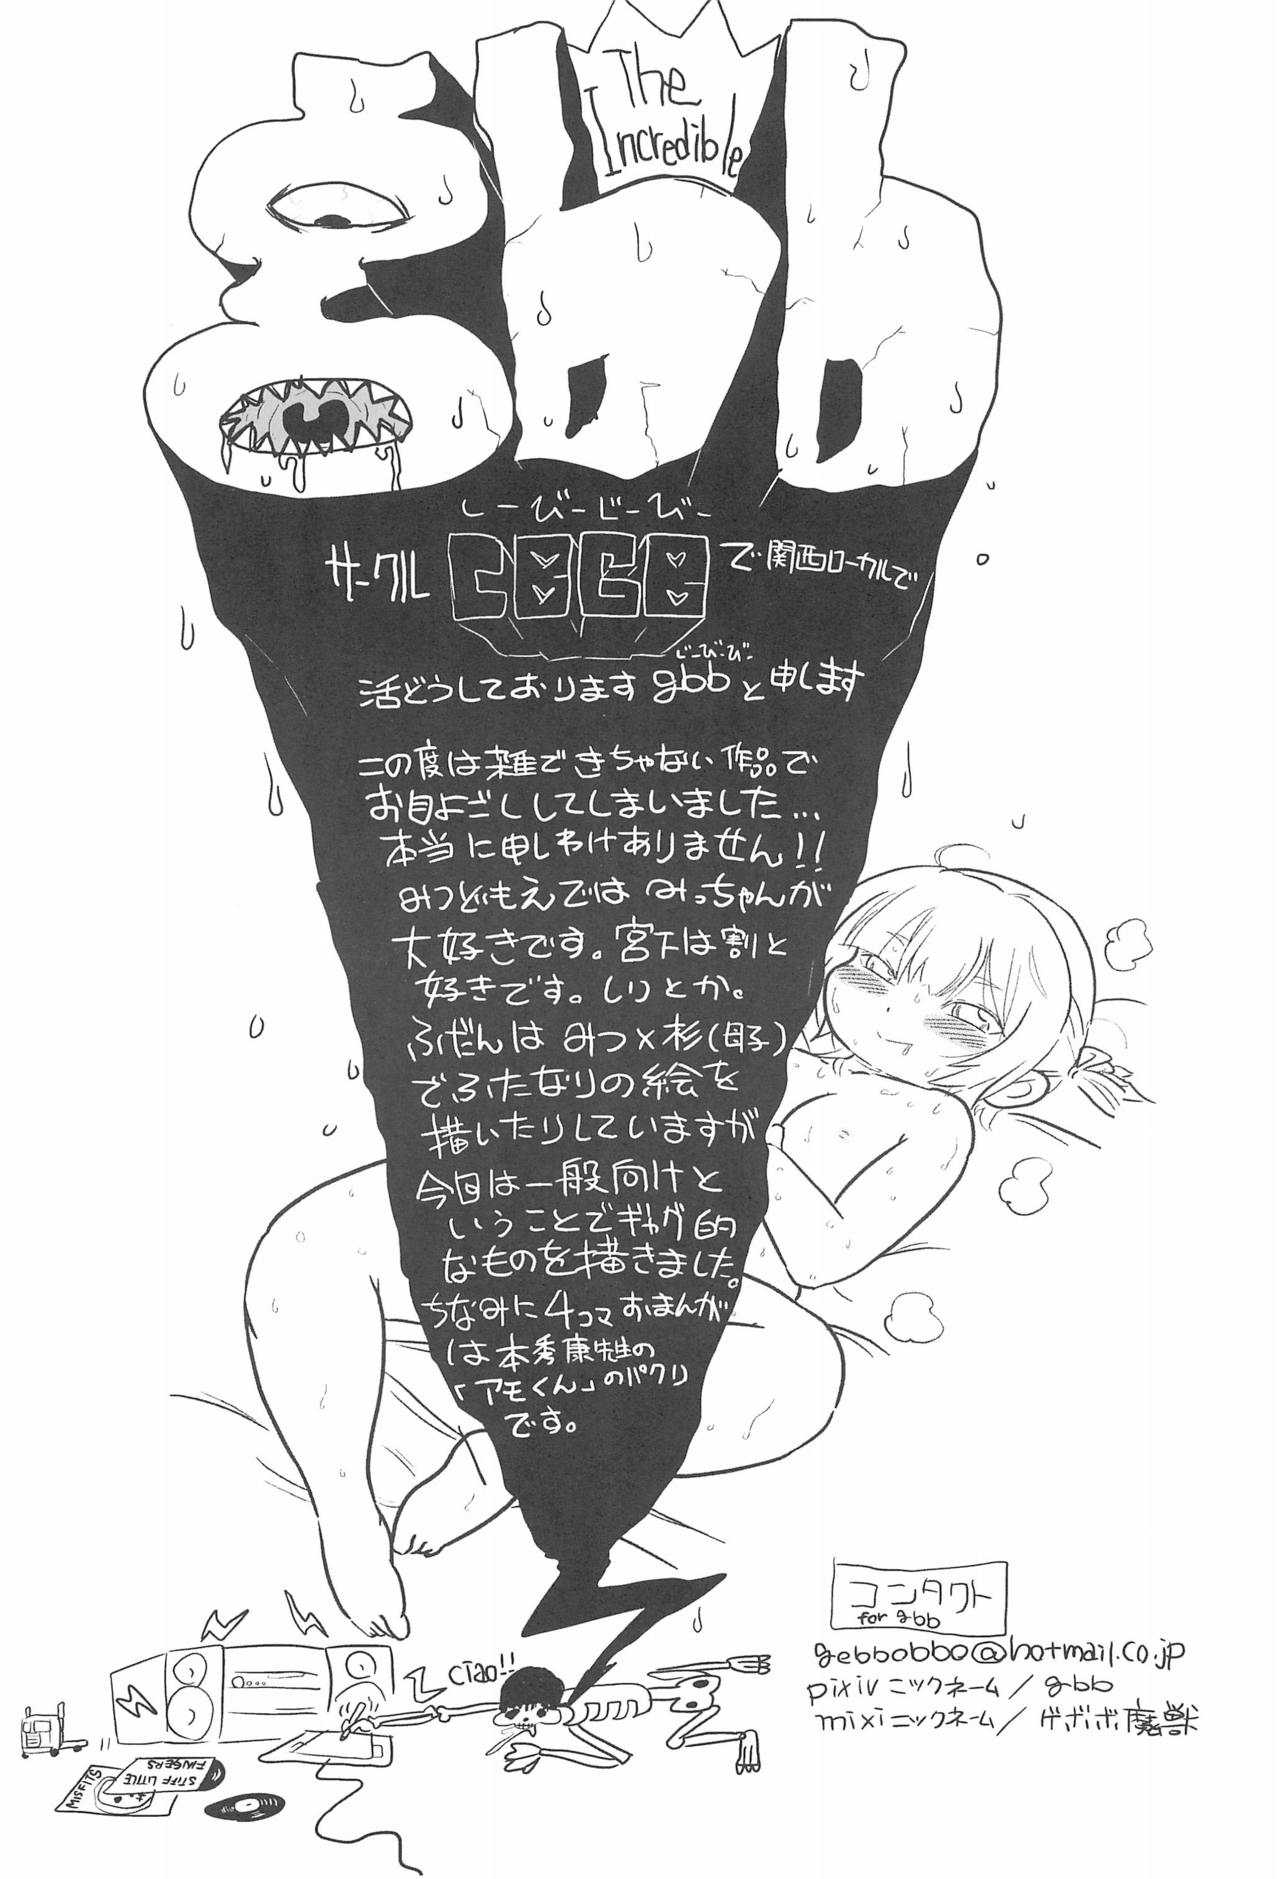 The
Incredible
gbb
しーびーじーびー
サークル CBGB で関西ローカルで
じーびーびー
活どうしております gbbと申します
この度は雑できちゃない作品で
お目よごししてしまいました…
本当に申しわけありません!!
みつどもえでは みっちゃんが
大好きです。宮下は割と
好きです。しりとか。
ふだんは みつ×杉(母子)
でふたなりの絵を
描いたりしていますが
今回は一般向けと
いうことでギャグ的
なものを描きました。
ちなみに4コマおまんが
は本秀康先生の
「アモくん」のパクリ
です。
コンタクト
for gbb
gebbobbo@hotmail.co.jp
pixiv ニックネーム/gbb
mixiニックネーム/ゲボボ魔獣
ciao!!
MISFITS
STIFF LITTLE
FINGERS